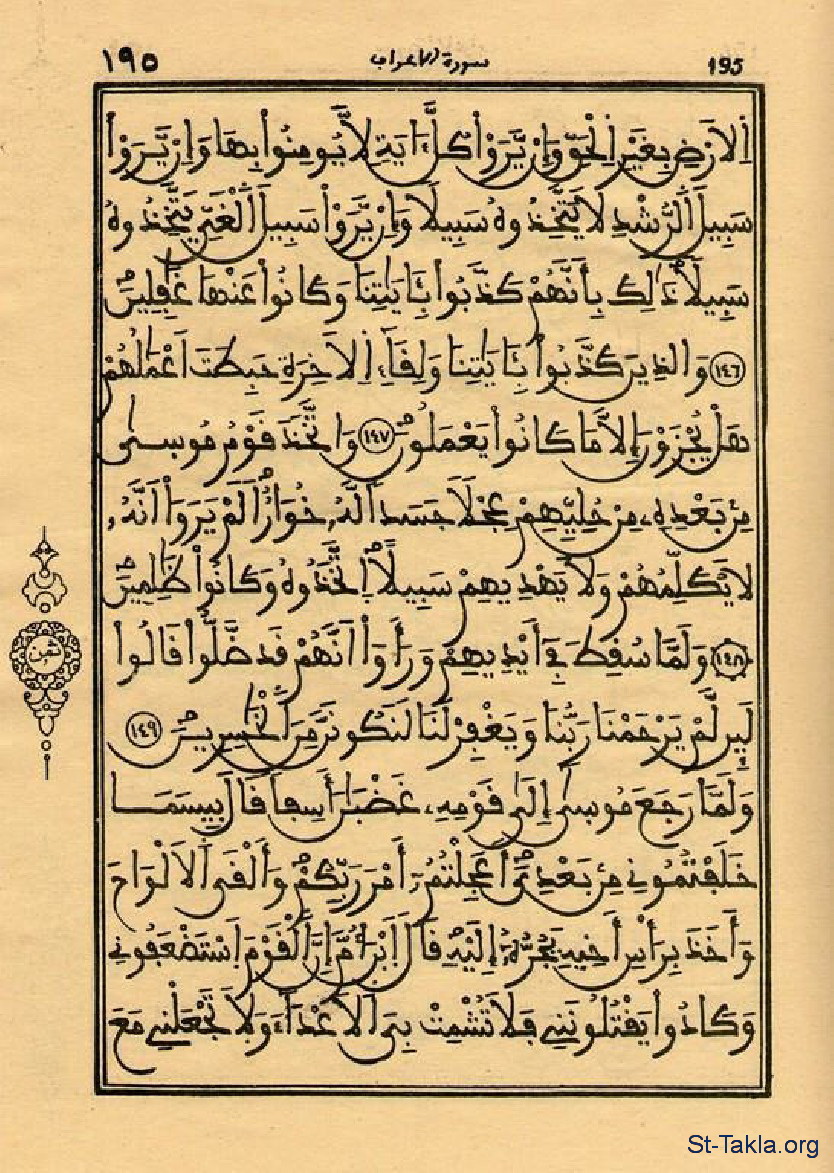 ١٩٥ سورة الاعراف 195
اِ۬لَارْضِ بِغَيْرِ اِ۬لْحَقِّ وَإِنْ يَّرَوْاْ كُلَّ ءَايَةٖ لَّا يُومِنُواْ بِهَا وَإِنْ يَّرَوْاْ
سَبِيلَ اَ۬لرُّشْدِ لَا يَتَّخِذُوهُ سَبِيلاٗ وَإِنْ يَّرَوْاْ سَبِيلَ اَ۬لْغَيِّ يَتَّخِذُوهُ
سَبِيلاٗ ذَٰلِكَ بِأَنَّهُمْ كَذَّبُواْ بِـَٔايَٰتِنَا وَكَانُواْ عَنْهَا غَٰفِلِينَ
١٤٦ وَالذِينَ كَذَّبُواْ بِـَٔايَٰتِنَا وَلِقَآءِ اِ۬لَاخِرَةِ حَبِطَتَ اَعْمَٰلُهُمْ
هَلْ يُجْزَوْنَ إِلَّا مَا كَانُواْ يَعْمَلُونَ ١٤٧ وَاتَّخَذَ قَوْمُ مُوسَىٰ
مِنۢ بَعْدِهِۦ مِنْ حُلِيِّهِمْ عِجْلاٗ جَسَداٗ لَّهُۥ خُوَارٌ اَلَمْ يَرَوَاْ اَنَّهُۥ
لَا يُكَلِّمُهُمْ وَلَا يَهْدِيهِمْ سَبِيلاً اِ۪تَّخَذُوهُ وَكَانُواْ ظَٰلِمِينَ
١٤٨ وَلَمَّا سُقِطَ فِےٓ أَيْدِيهِمْ وَرَأَوَاْ اَنَّهُمْ قَد ضَّلُّواْ قَالُواْ
لَئِن لَّمْ يَرْحَمْنَا رَبُّنَا وَيَغْفِرْ لَنَا لَنَكُونَنَّ مِنَ اَ۬لْخَٰسِرِينَ ١٤٩
وَلَمَّا رَجَعَ مُوسَىٰٓ إِلَىٰ قَوْمِهِۦ غَضْبَٰنَ أَسِفاٗ قَالَ بِيسَمَا
خَلَفْتُمُونِے مِنۢ بَعْدِيَ أَعَجِلْتُمُۥٓ أَمْرَ رَبِّكُمْ وَأَلْقَى اَ۬لَالْوَاحَ
وَأَخَذَ بِرَأْسِ أَخِيهِ يَجُرُّهُۥٓ إِلَيْهِ قَالَ اَ۪بْنَ أُمَّ إِنَّ اَ۬لْقَوْمَ اَ۪سْتَضْعَفُونِے
وَكَادُواْ يَقْتُلُونَنِے فَلَا تُشْمِتْ بِيَ اَ۬لَاعْدَآءَ وَلَا تَجْعَلْنِے مَعَ
ثمن
St-Takla.org